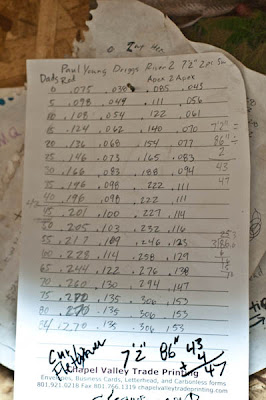 0 2 up
Paul Young Driggs River 2 7'2" 2pc 5w
Dads Rod Apex 2 Apex
0 .075 .038 .085 .043
5 .098 .049 .111 .056
10 .108 .054 .122 .061
15 .124 .062 .140 .070 7'2"
20 .136 .068 .154 .077 86"
25 .146 .073 .165 .083 2
30 .166 .083 .188 .094 43
35 .196 .098 .222 .111 47
40 .196 .098 .222 .111
45 .201 .100 .227 .114
50 .205 .103 .232 .116
55 .217 .109 .246 .123
60 .228 .114 .258 .129
65 .244 .122 .276 .138
70 .260 .130 .294 .147
75 .270 .135 .306 .153
80 .270 .135 .306 .153
84 .270 .135 .306 .153
Chapel Valley Trade Printing
Envelopes, Business Cards, Letterhead, and Carbonless forms
801.921.0218 Fax 801.766.1319 chapelvalleytradeprinting.com
7'2" 86" 43
4
47